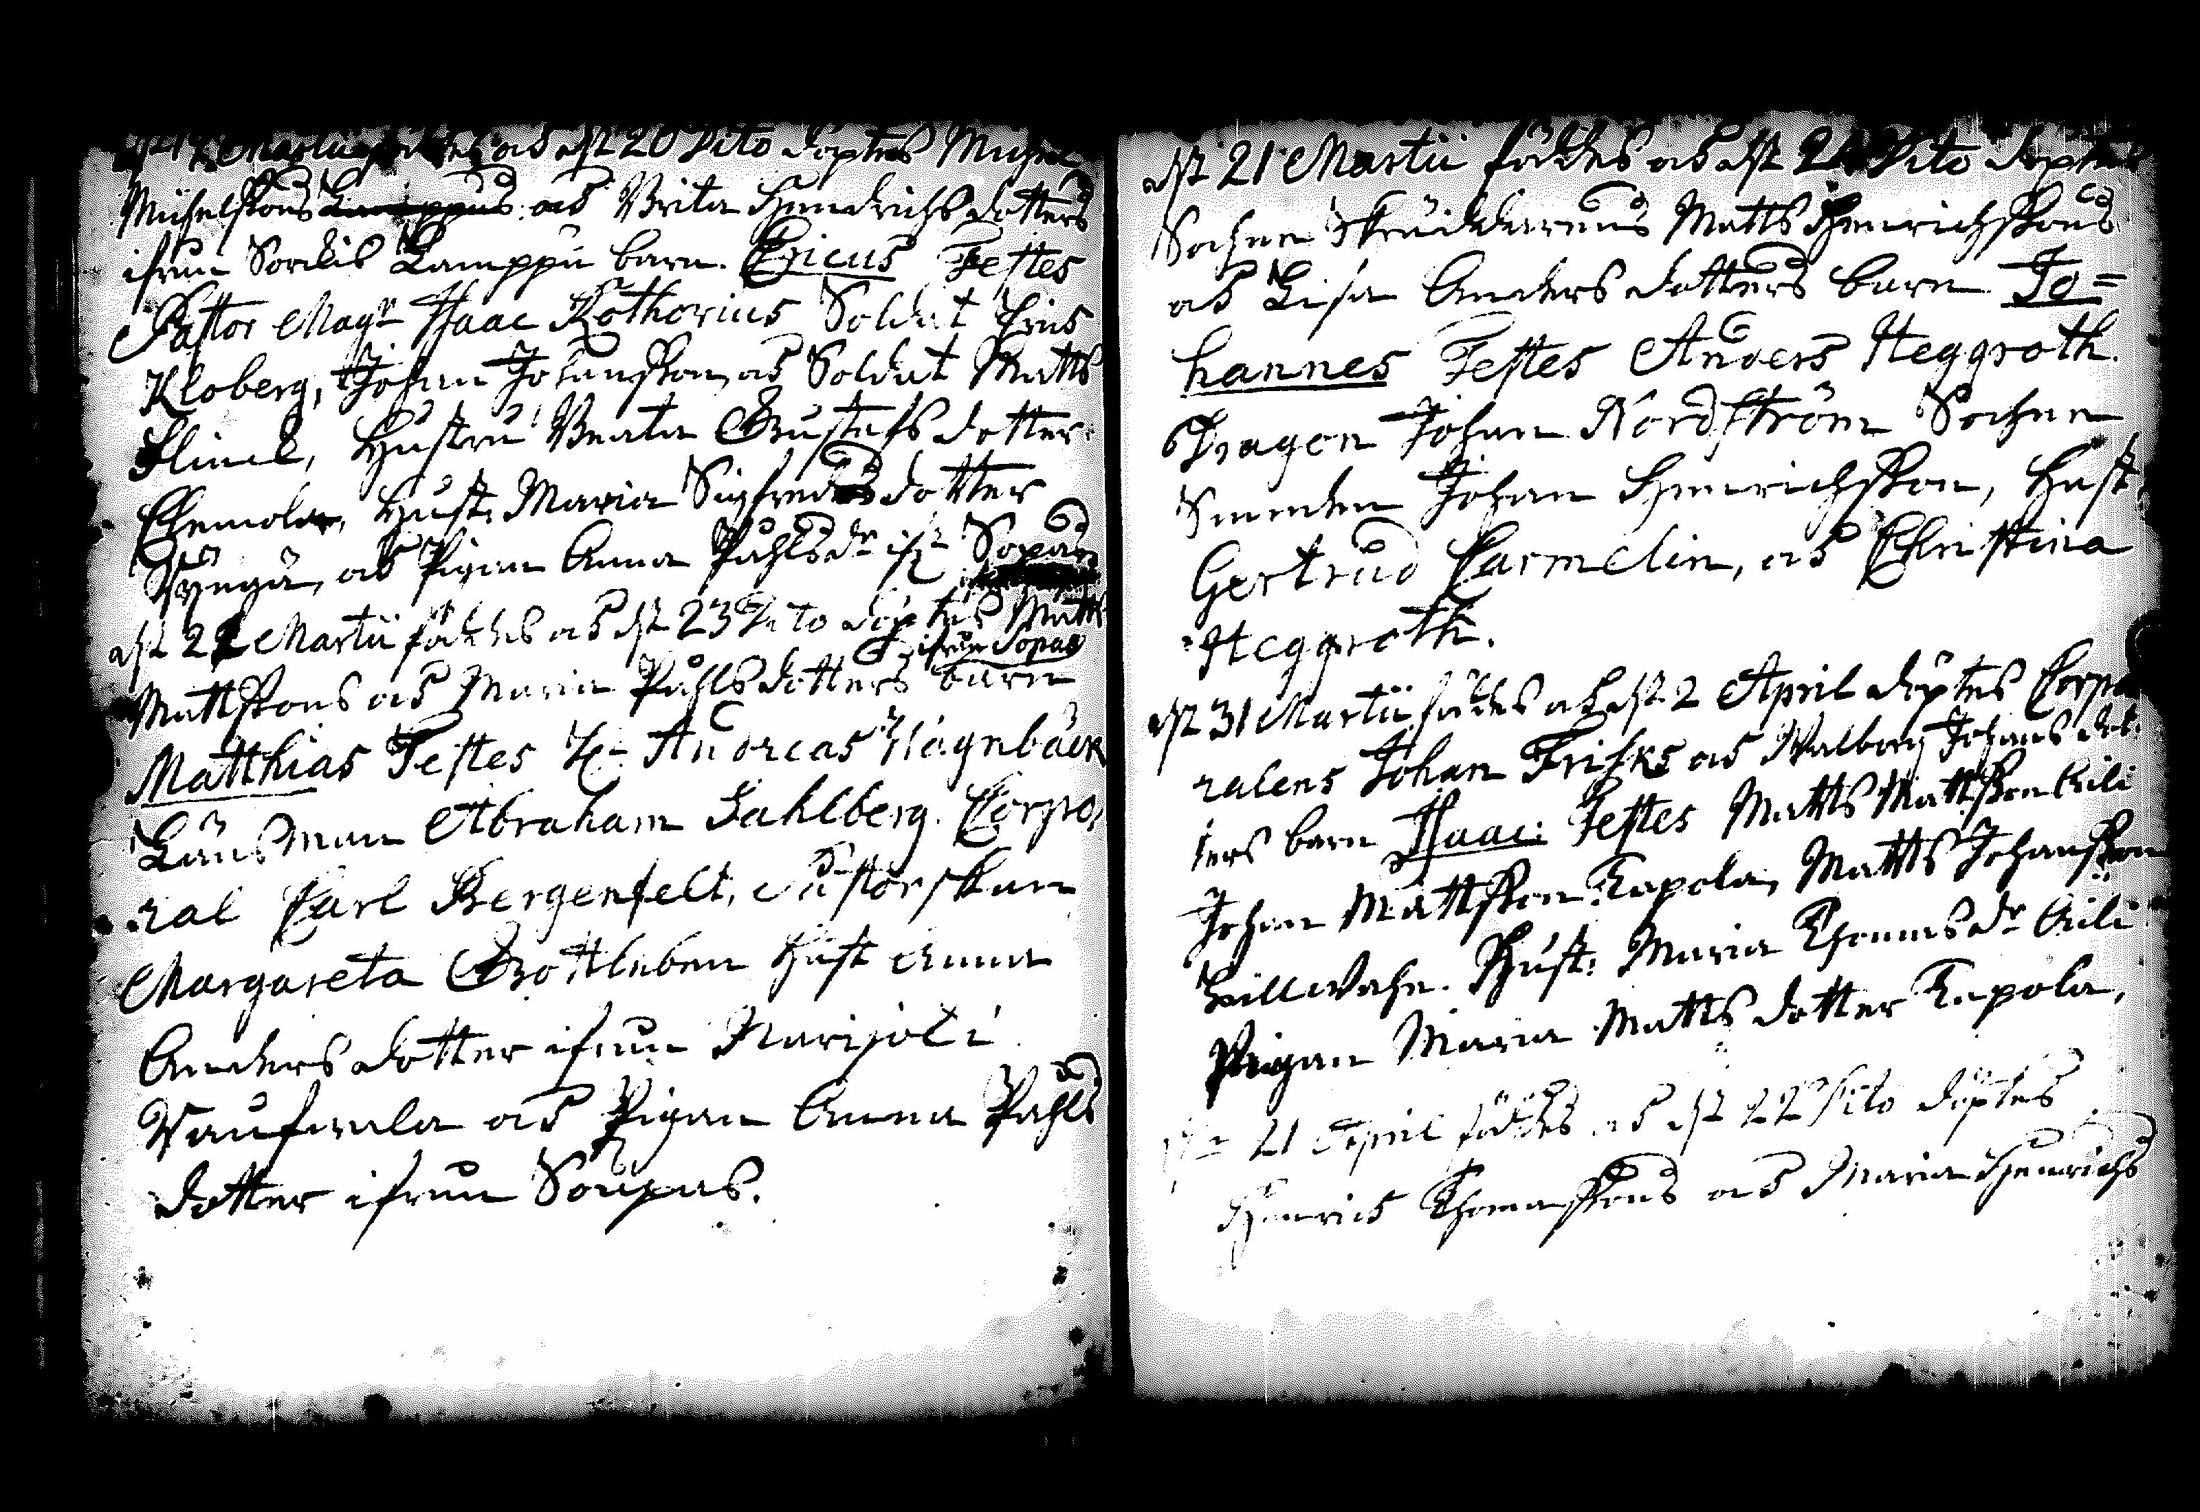 Martii föddes och dn 20 Dito döptes Michel
Michelssons Lamppus och Brita Hendrichs dotters
ifrån Sordis Lamppu barn. Ericus Testes
Pastor Magr Isaac Rothovius Soldat Eric
Kloberg, Johan Johansson, och Soldat Matts
Flinck, Hustru Beata Gustafs dotter
Hust. Maria Sigfreds dotter
och Pigan Anna Påhlsdr ifr Sopas
dn 22 Martii föddes och dn 23 Dito döptes Matts
ifrån Sopas
Mattssons och Maria Påhlsdotters barn
Matthias Testes H. Andreas Hagnbäck
Länsman Abraham Sahlberg. Corpo,
ral Carl Bergenfelt, Pastorskan
Margareta Gottleben Hust Anna
Anders dotter ifrån Narijoki
och Pigan Anna Påhls
dotter ifrån Soupas.
dn 21 Martii föddes och dn 24 Dito döptes
Sochne Skräddarens Matts Henrichssons
och Lisa Anders dotters barn Jo=
hannes Testes Anders Heggroth.
Dragon Johan Nordström Sochne
Smeden Johan Henrichsson, Hust.
Gertrud Carmelin, och Christina
Heggroth.
dn 31 Martii föddes och dn 2 April döptes Corpo
ralens Johan Frisks och Walborg Johans dot
ters barn Isaac. Testes Matts Mattsson Kili
Johan Mattsson Kapola, Matts Johansson
Hust: Maria Thomasdr Kili
Pigan Maria Matts dotter Kapola,
dn 21 April föddes och dn 22 Dito döptes
Henric Thomassons och Maria Henrichs